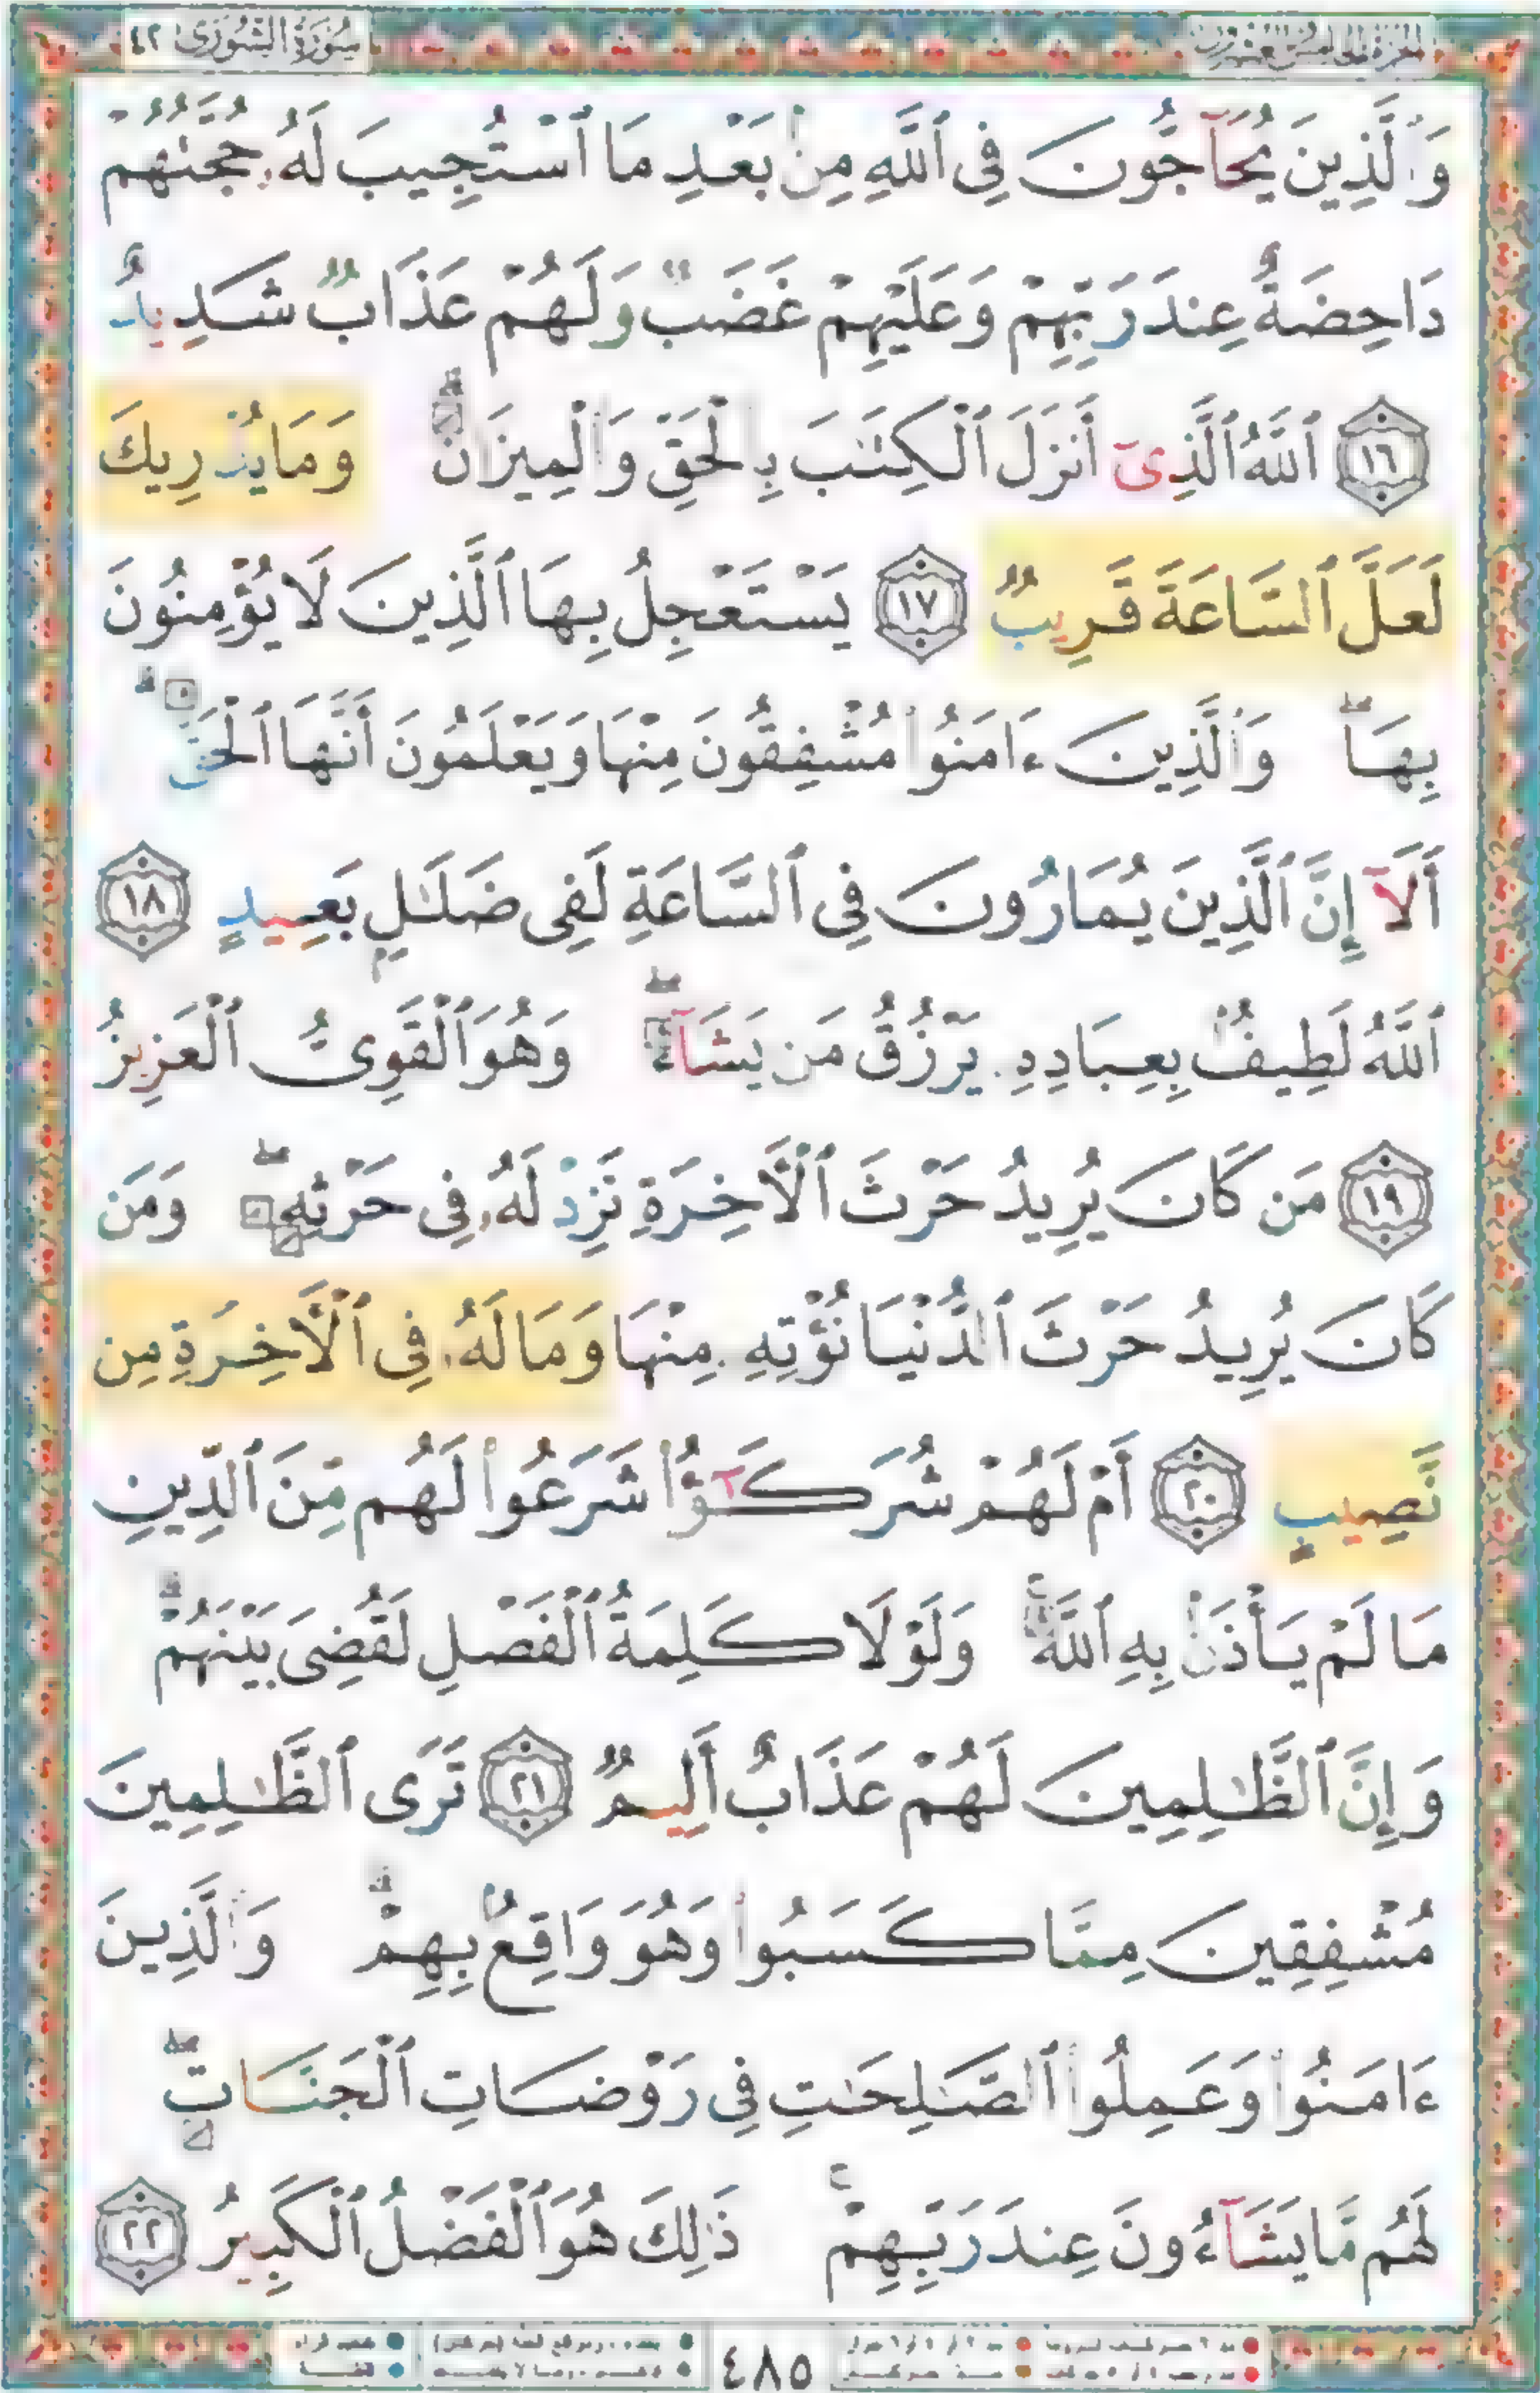 سُورَةُ الشُّورَىٰ ٤٢
الجزء الخامس والعشرون
وَٱلَّذِينَ يُحَآجُّونَ فِى ٱللَّهِ مِنۢ بَعْدِ مَا ٱسْتُجِيبَ لَهُۥ حُجَّتُهُمْ
دَاحِضَةٌ عِندَ رَبِّهِمْ وَعَلَيْهِمْ غَضَبٌ وَلَهُمْ عَذَابٌ شَدِيدٌ
١٦ ٱللَّهُ ٱلَّذِىٓ أَنزَلَ ٱلْكِتَـٰبَ بِٱلْحَقِّ وَٱلْمِيزَانَ ۗ وَمَا يُدْرِيكَ
لَعَلَّ ٱلسَّاعَةَ قَرِيبٌ ١٧ يَسْتَعْجِلُ بِهَا ٱلَّذِينَ لَا يُؤْمِنُونَ
بِهَا ۖ وَٱلَّذِينَ ءَامَنُوا۟ مُشْفِقُونَ مِنْهَا وَيَعْلَمُونَ أَنَّهَا ٱلْحَقُّ ۗ
أَلَآ إِنَّ ٱلَّذِينَ يُمَارُونَ فِى ٱلسَّاعَةِ لَفِى ضَلَـٰلٍۭ بَعِيدٍ ١٨
ٱللَّهُ لَطِيفٌۢ بِعِبَادِهِۦ يَرْزُقُ مَن يَشَآءُ ۖ وَهُوَ ٱلْقَوِىُّ ٱلْعَزِيزُ
١٩ مَن كَانَ يُرِيدُ حَرْثَ ٱلْـَٔاخِرَةِ نَزِدْ لَهُۥ فِى حَرْثِهِۦ ۖ وَمَن
كَانَ يُرِيدُ حَرْثَ ٱلدُّنْيَا نُؤْتِهِۦ مِنْهَا وَمَا لَهُۥ فِى ٱلْـَٔاخِرَةِ مِن
نَّصِيبٍ ٢٠ أَمْ لَهُمْ شُرَكَـٰٓؤُا۟ شَرَعُوا۟ لَهُم مِّنَ ٱلدِّينِ
مَا لَمْ يَأْذَنۢ بِهِ ٱللَّهُ ۚ وَلَوْلَا كَلِمَةُ ٱلْفَصْلِ لَقُضِىَ بَيْنَهُمْ ۗ
وَإِنَّ ٱلظَّـٰلِمِينَ لَهُمْ عَذَابٌ أَلِيمٌ ٢١ تَرَى ٱلظَّـٰلِمِينَ
مُشْفِقِينَ مِمَّا كَسَبُوا۟ وَهُوَ وَاقِعٌۢ بِهِمْ ۗ وَٱلَّذِينَ
ءَامَنُوا۟ وَعَمِلُوا۟ ٱلصَّـٰلِحَـٰتِ فِى رَوْضَاتِ ٱلْجَنَّاتِ ۖ
لَهُم مَّا يَشَآءُونَ عِندَ رَبِّهِمْ ۚ ذَٰلِكَ هُوَ ٱلْفَضْلُ ٱلْكَبِيرُ ٢٢
٤٨٥